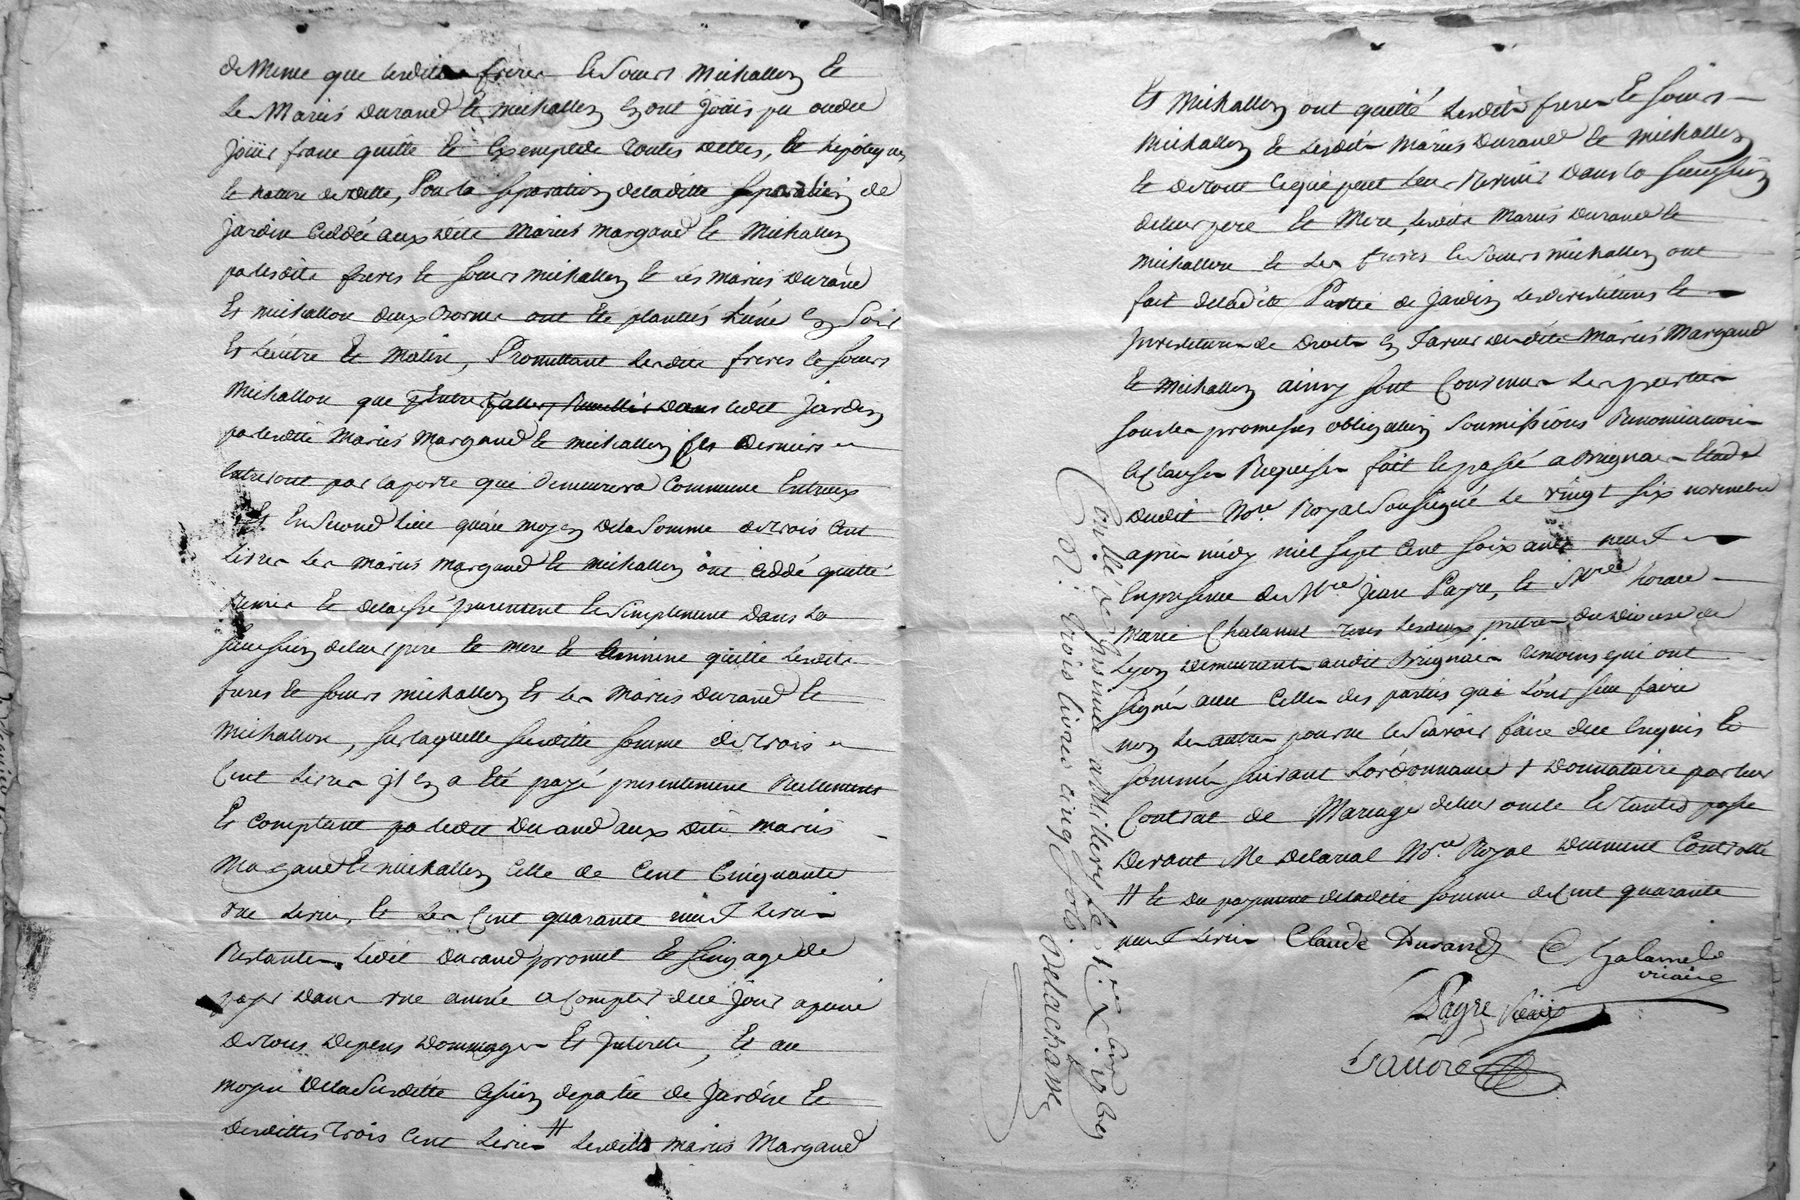 de Meme que lesdits freres et soeurs Michallon Et
Les Mariés Durand et michallon en ont Joüis pu ou du
Joüir franc quitte Et Exempt de toutes dettes, Et hipoteques
Et nature de dette, Pour la separation de la ditte separation de
Jardin Ceddée aux dits Mariés Margand Et Michallon
par lesdits freres Et soeurs michallon Et les mariés Durand
Et michallon deux bornes ont Eté plantées L'une En Soir
Et L'autre Et Matin, Promettant lesdits freres Et soeurs
Michallon que dans ledit Jardin
par lesdits Mariés Margand Et michallon ces Derniers
Entreront par la porte qui demeurera Commune Entreux
Et En Second lieu qu'au moyen de la Somme de trois Cent
Livres Les mariés margand Et michallon ont Ceddé quitté
Remis Et delaissé purement Et Simplement dans La
Succession de leur pere Et mere Et quitte lesdits
freres Et soeurs michallon Et Les Mariés Durand Et
Michallon, sur laquelle susditte somme de trois
Cent Livres il En a Eté payé presentement Reellement
Et Comptant par ledit Durand aux dits mariés
Margand Et michallon Celle de Cent Cinquante
une Livres, Et Les Cent quarante neuf Livres
Restantes ledit Durand promet Et s'engage de
payer dans une année a Compter de ce Jour a peine
de tous depens dommages Et Interets, Et au
moyen de la Susditte Cession de partie de Jardin Et
desdittes trois Cent Livres # Lesdits mariés Margand
Et Michallon ont quitté lesdits freres Et soeurs
Michallon Et lesdits Mariés Durand Et Michallon
Et de tout Ce qui peut leur Revenir dans la Succession
de leur pere Et Mere, lesdits Mariés Durand Et
Michallon Et Les freres Et soeurs michallon ont
fait de la ditte Partie de Jardin les devestitures Et
Investitures de Droit En faveur desdits Mariés Margand
Et Michallon ainsy sont Convenues Les parties
sous les promesses obligation Soumissions Renonciations
Et Clauses Requises fait Et passé a Brignais Etude
dudit Nore Royal Soussigné Le vingt six novembre
apres midy mil sept Cent soixante neuf
En presence de Mre Jean Payre, Et Mre
Marie Chalamel tous lesdeux pretres du diocese de
Lyon demeurants audit Brignais temoins qui ont
signé avec Celles des parties qui L'ont sçu faire
non Les autres pour ne le Scavoir faire de ce Enquis Et
sommés suivant L'ordonnance + Donnataire par leur
Contrat de Mariage de leur oncle Et tante passé
Devant Me Delaval Nre Royal Duement Controllé
# Et du payment de la dite Somme de Cent quarante
neuf Livres Claude Durand C Chalamel
vicaire
Payre
Controllé
R. trois livres cinq sols. Delachasse